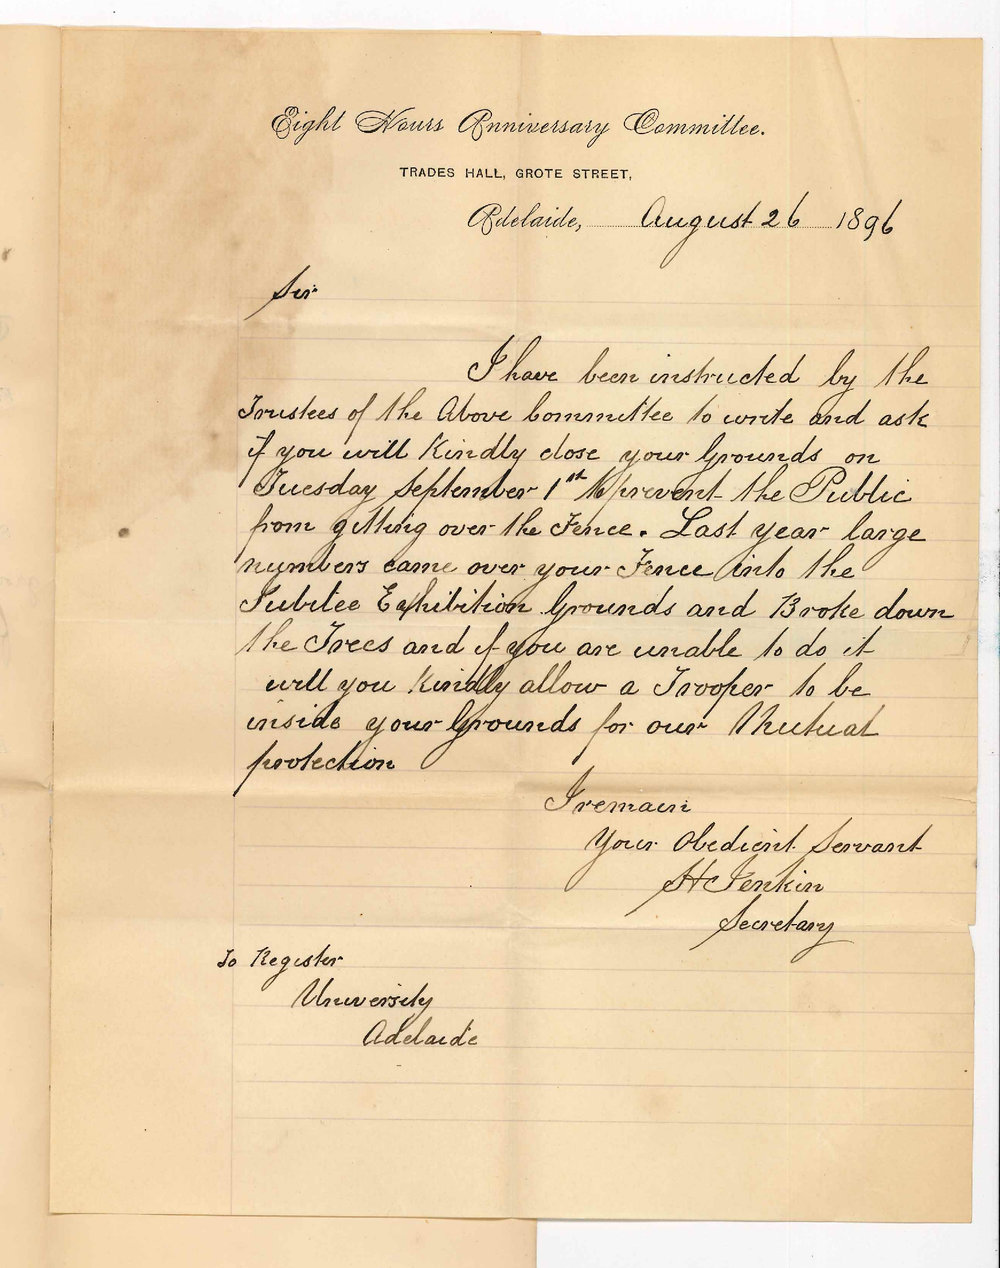 Eight Hours Anniversary Committee.
TRADES HALL, GROTE STREET,
Adelaide, August 26 1896
Sir
I have been instructed by the
Trustees of the Above Committee to write and ask
if you will Kindly close your Grounds on
Tuesday September 1st to prevent the Public
from gitting over the Fence. Last year large
numbers came over your Fence into the
Jubilee Exhibition Grounds and Broke down
the Trees and if you are unable to do it
will you Kindly allow a Trooper to be
inside your Grounds for our Mutual
protection
I remain
Your Obedient Servant
H Jenkin
Secretary
To Register
University
Adelaide